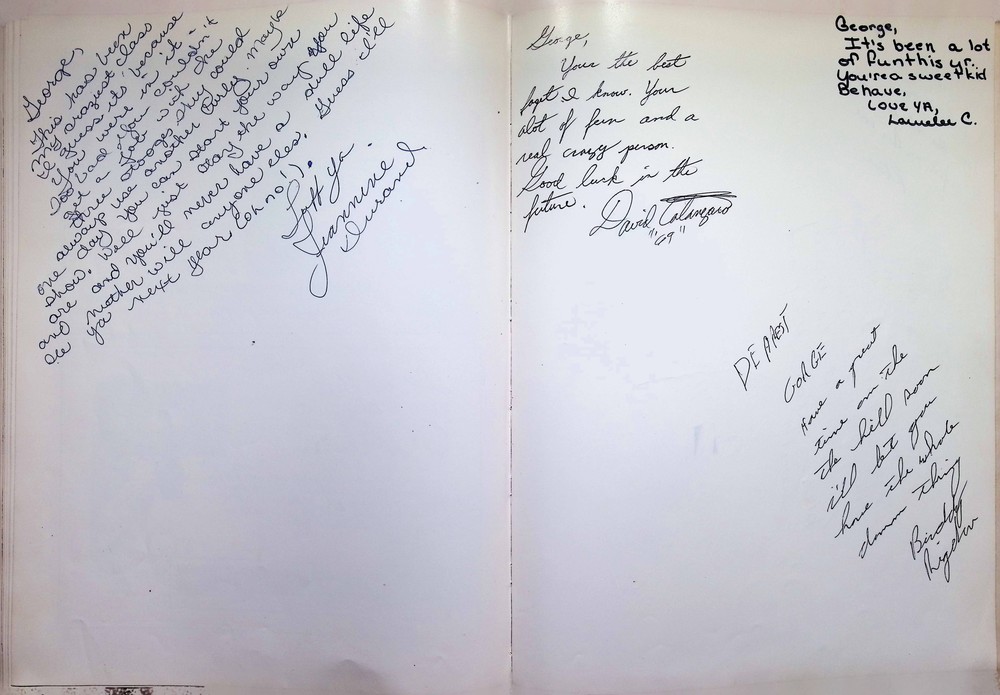 George,
This has been
my craziest class
I guess its' because
you were in it -
Too bad you couldn't
get a job with the
three stooges, they could
always use another Curly. Maybe
one day you can start your own
show. Well just stay the way you
are and you'll never have a dull life
and niether will anyone eles. Guess I'll
see ya next year (oh no!).
Luff ya.
Jeannine
Durand
George,
Your the best
fagit I know. Your
alot of fun and a
real crazy person.
Good luck in the
future.
David
"69"
George,
It's been a lot
of fun this yr.
You're a sweet kid
Behave,
Love YA,
Laurelee C.
DEAREST
GORGE
Have a great
time on the
the hill soon
i'll let you
have the whole
damn thing
Birdy